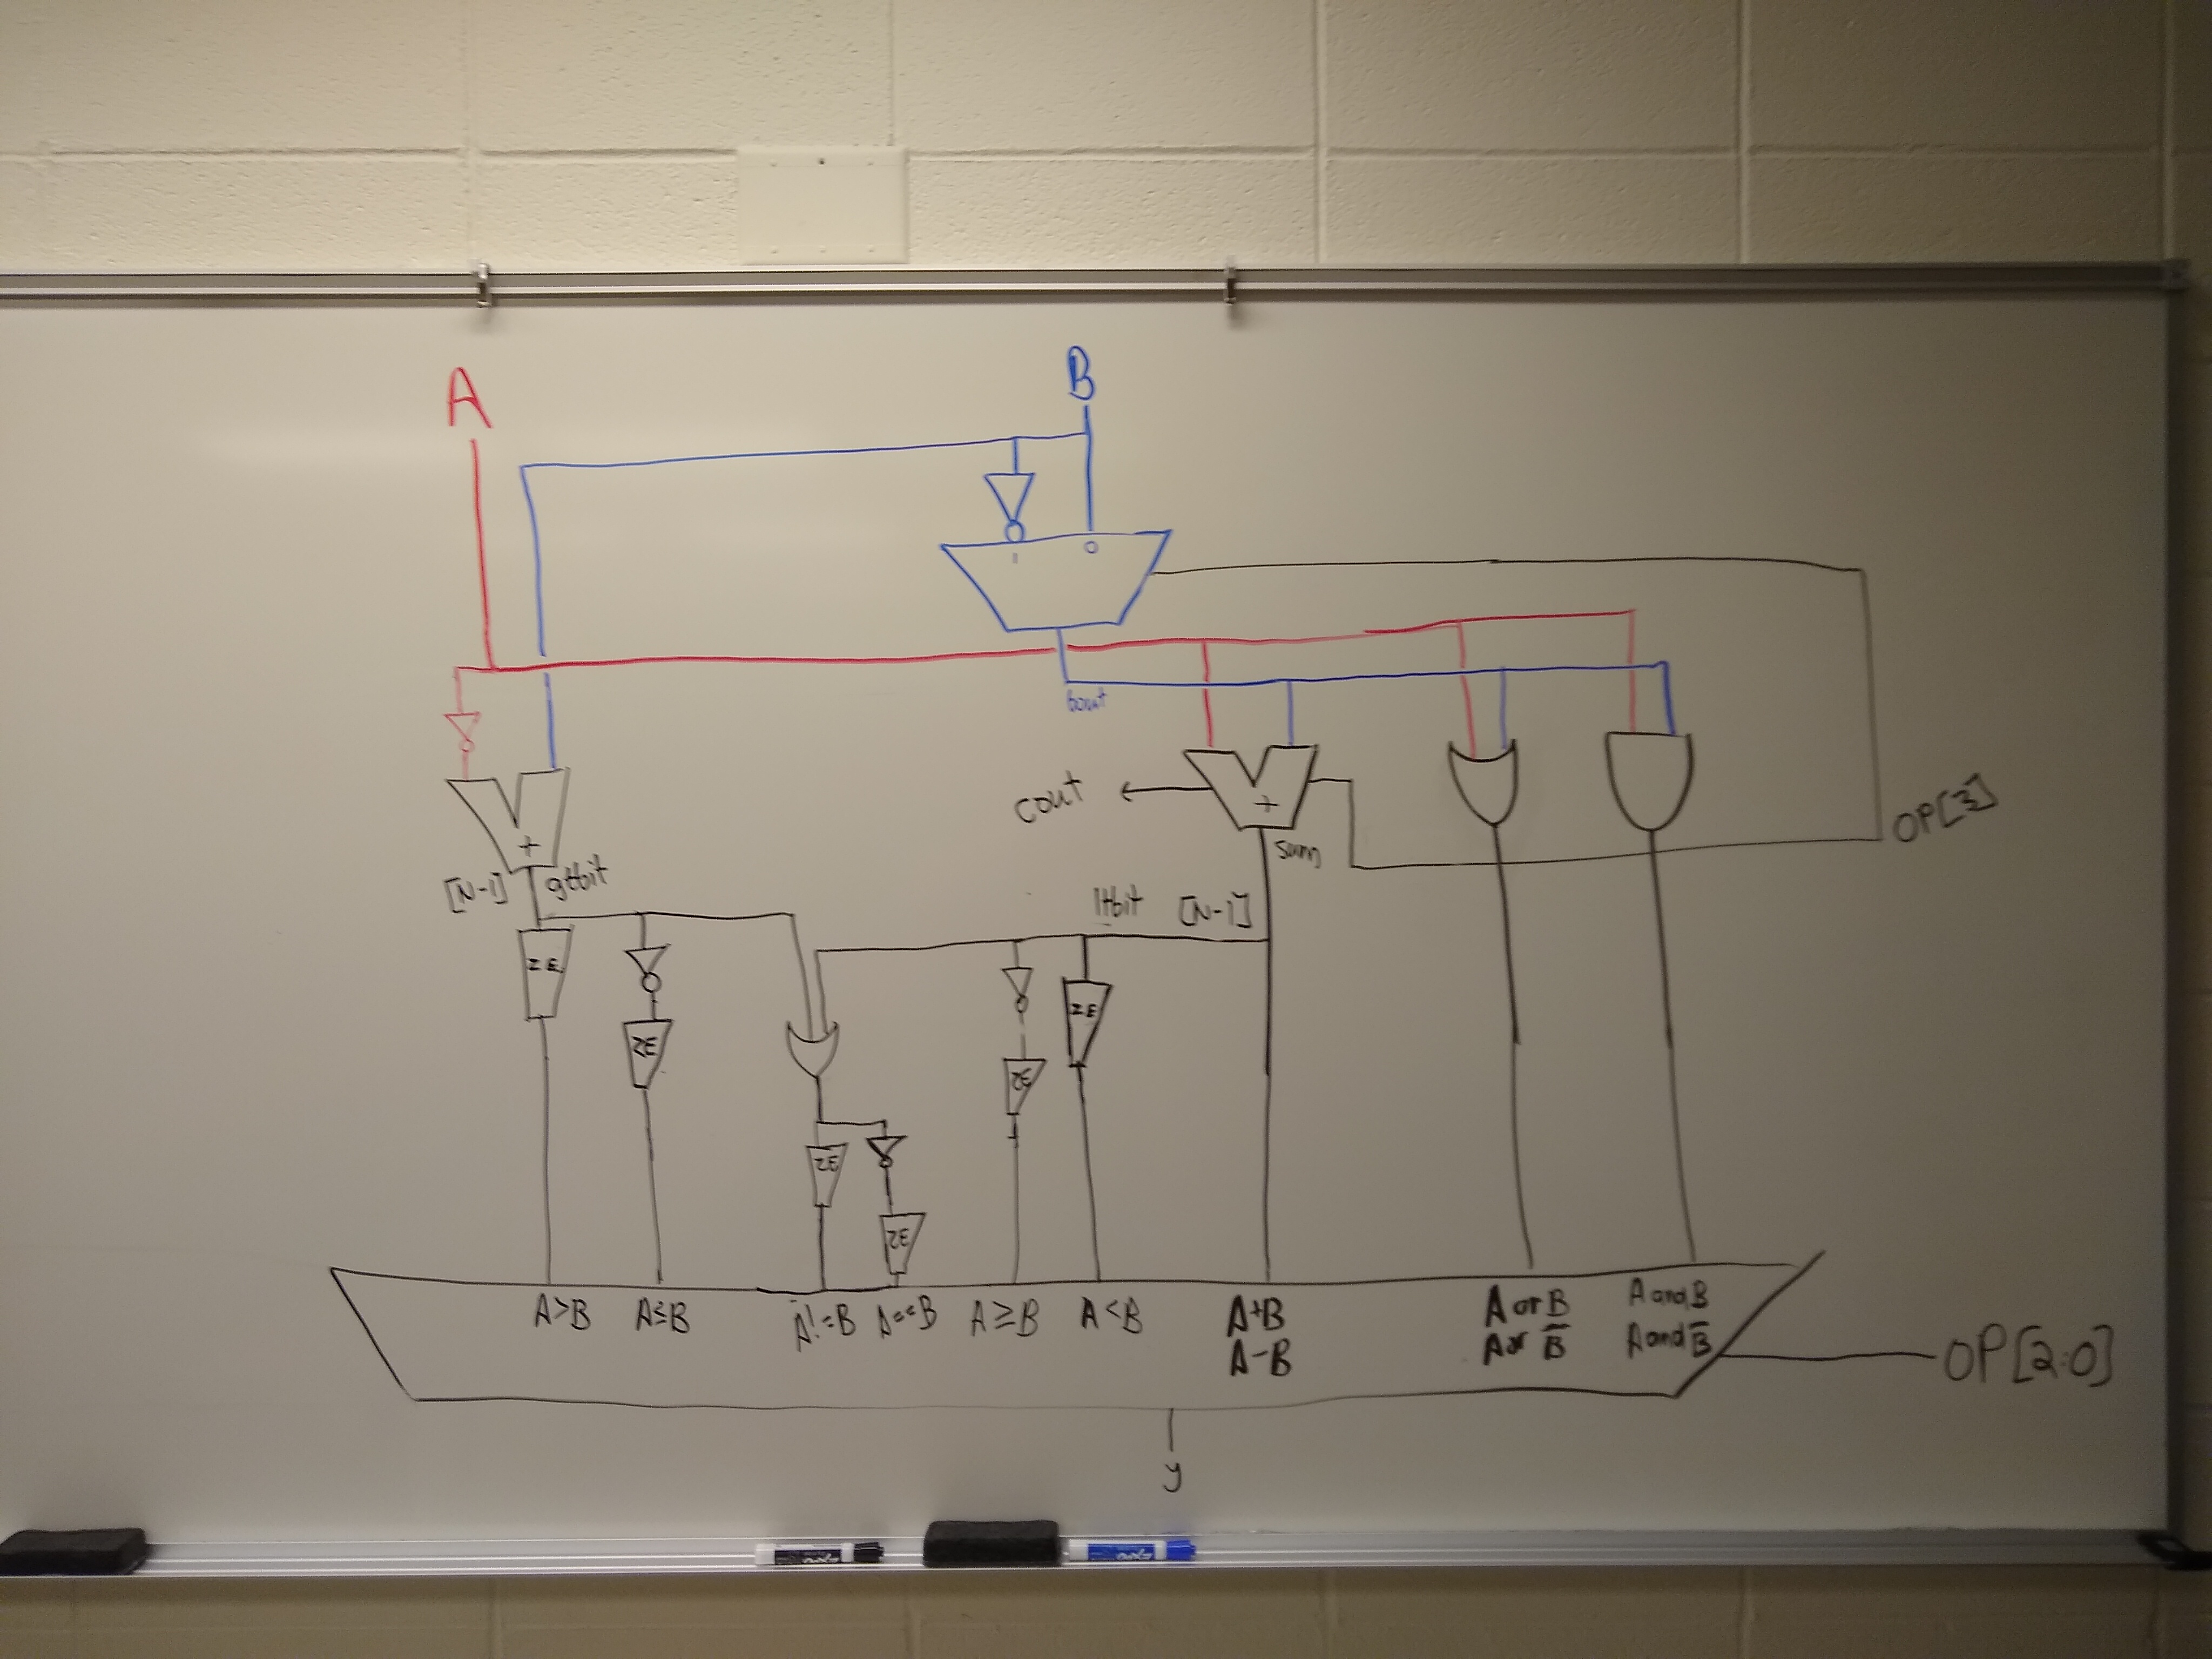 A
B
1 0
bout
cout
+
sum
OP[3]
+
[N-1] gtbit
ltbit [N-1]
ZE
ZE
ZE
ZE
ZE
ZE
A>B A≤B A!=B A==B A≥B A<B A+B A or B A and B
A-B A or B̅ A and B̅
OP[2:0]
y
EXPO
EXPO